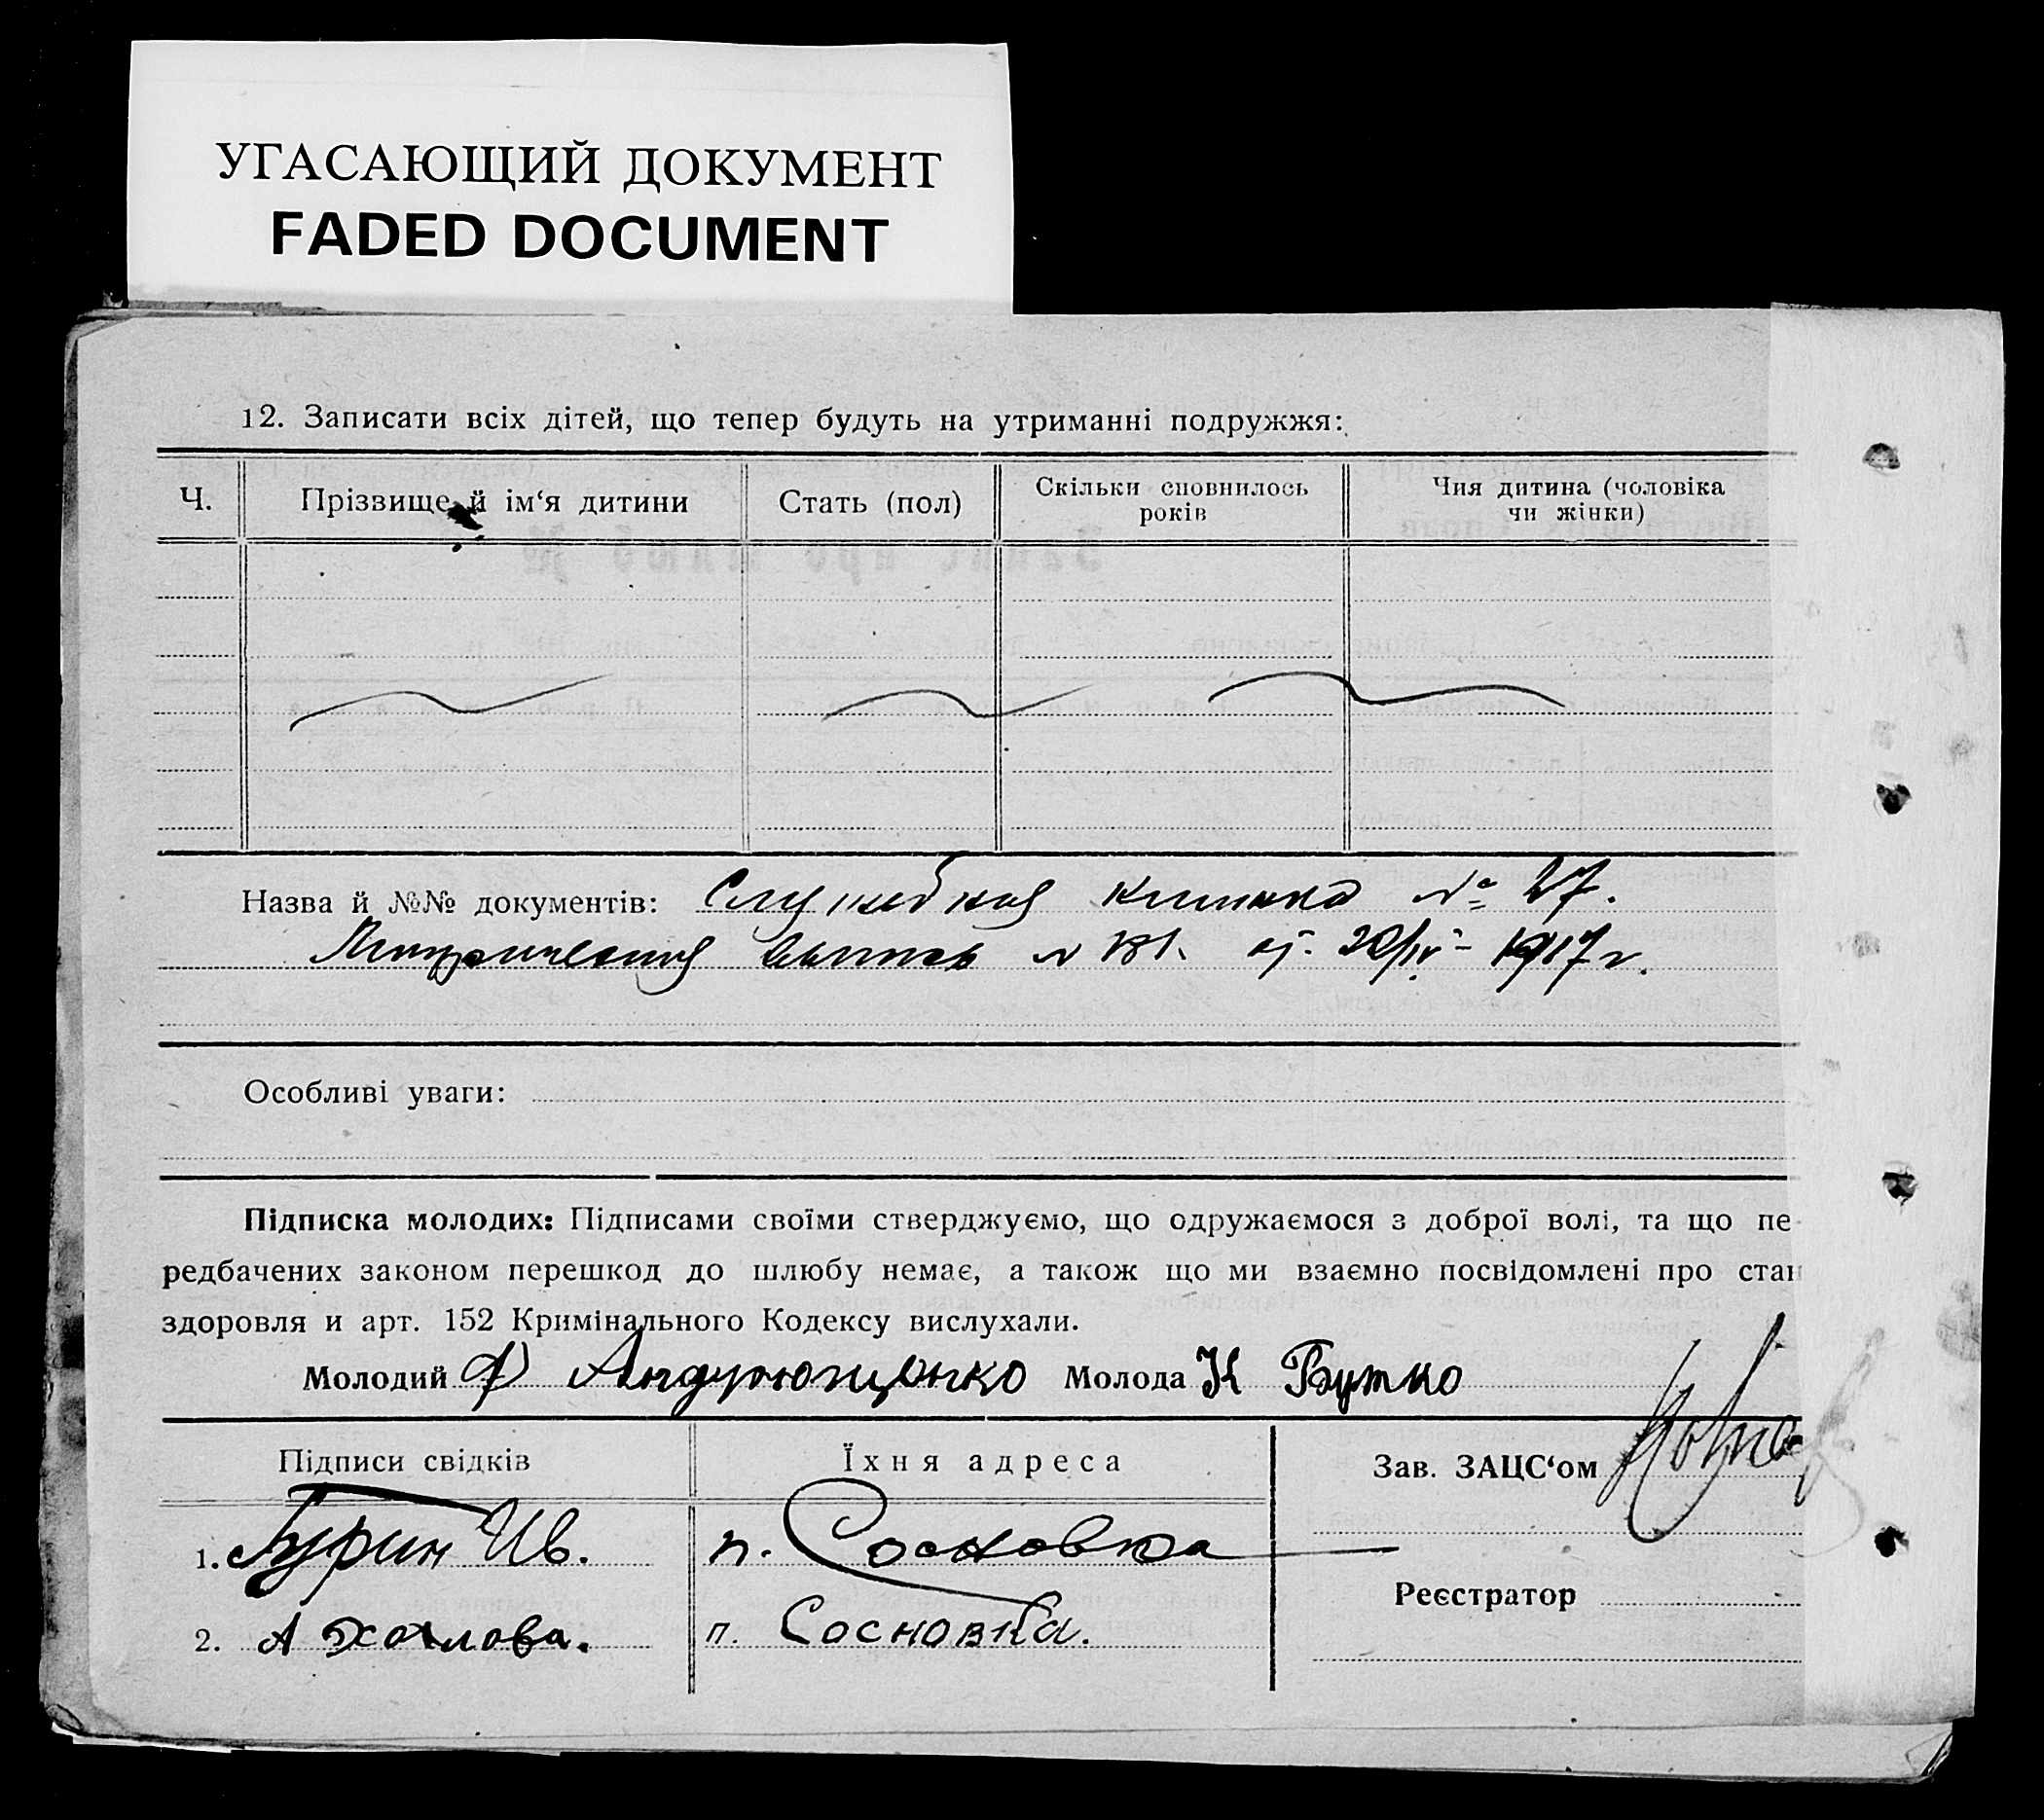 УГАСАЮЩИЙ ДОКУМЕНТ
FADED DOCUMENT
12. Записати всіх дітей, що тепер будуть на утриманні подружжя:
Ч. Прізвище й ім‘я дитини Стать (пол) Скільки сповнилось років Чия дитина (чоловіка чи жінки)
Назва й №№ документів: Служебная книжка № 27.
Метрическая выпись № 181. от 20/IV- 1917 г.
Особливі уваги:
Підписка молодих: Підписами своїми стверджуємо, що одружаємося з доброї волі, та що пе-
редбачених законом перешкод до шлюбу немає, а також що ми взаємно посвідомлені про стан
здоровля и арт. 152 Кримінального Кодексу вислухали.
Молодий Ф Андрющенко Молода К Бутко
Підписи свідків Їхня адреса Зав. ЗАЦС‘ом
1. Бурин Ив. п. Сосновка
Реєстратор
2. А п. Сосновка.